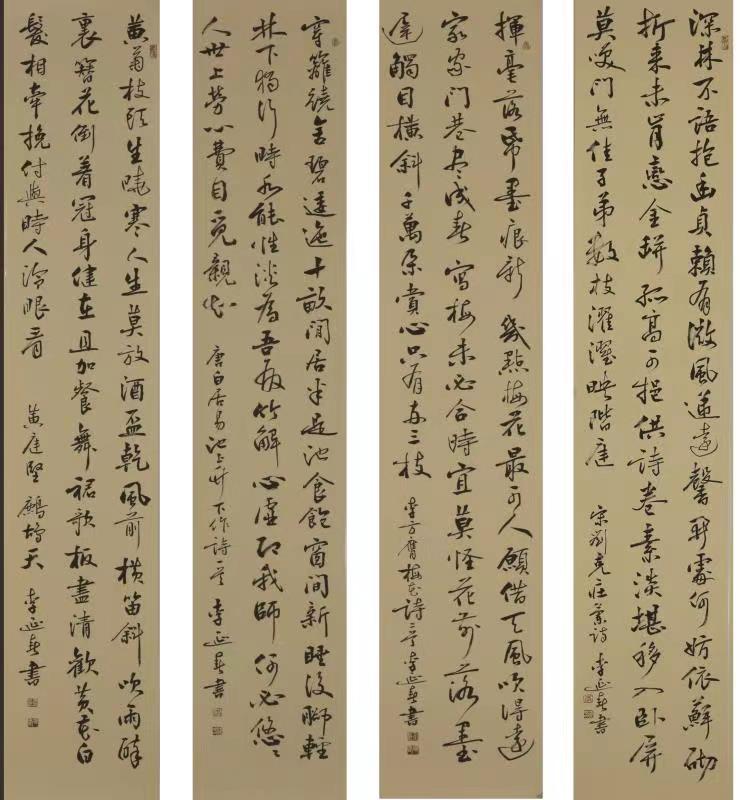 深林不語抱幽貞賴有微風遞遠馨開處何妨依蘚砌
折来未肯戀金缾孤高可挹供詩卷素淡堪移入卧屏
莫笑門無佳子弟數枝濯濯映階庭 宋劉克庄蘭詩 李延春書
揮毫落帋墨痕新幾點梅花最可人願借天風吹得遠
家家門巷盡成春寫梅未必合時宜莫怪花前落墨
遲觸目橫斜千萬朵賞心只有兩三枝 李方膺梅花詩二首 李延春書
穿籬繞舍碧逶迤十畝閒居半是池食飽窗間新睡後腳輕
林下獨行時水能性淡為吾友竹解心虛即我師何必悠悠
人世上勞心費目覓親知 唐白居易池上竹下作詩一首 李延春書
黃菊枝頭生曉寒人生莫放酒盃乾風前橫笛斜吹雨醉
裏簪花倒着冠身健在且加餐舞裙歌板盡清歡黃花白
髮相牽挽付與時人冷眼看 黃庭堅鷓鴣天 李延春書